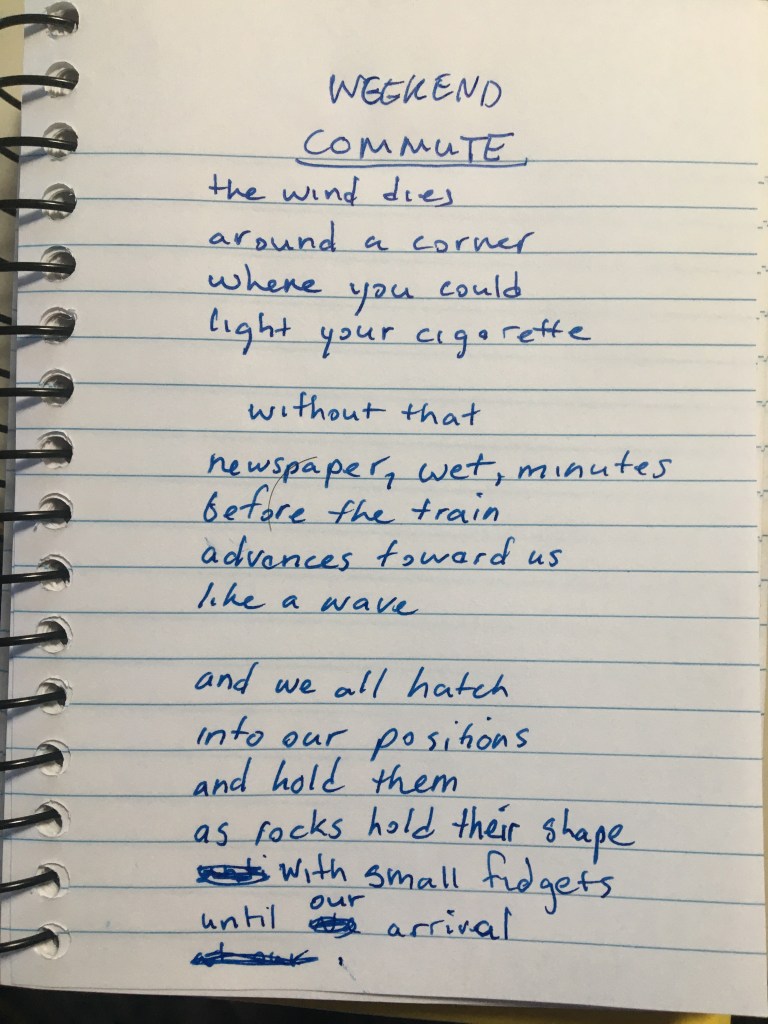 WEEKEND
COMMUTE
the wind dies
around a corner
where you could
light your cigarette
without that
newspaper, wet, minutes
before the train
advances toward us
like a wave
and we all hatch
into our positions
and hold them
as rocks hold their shape
with small fidgets
until our arrival
.